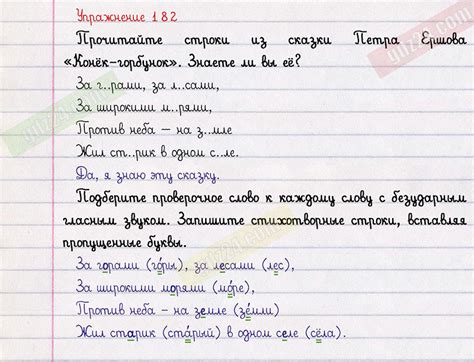 Упражнение 182
Прочитайте строки из сказки Петра Ершова
«Конёк-горбунок». Знаете ли вы её?
За г..рами, за л..сами,
За широкими м..рями,
Против неба – на з..мле
Жил ст..рик в одном с..ле.
Да, я знаю эту сказку.
Подберите проверочное слово к каждому слову с безударным
гласным звуком. Запишите стихотворные строки, вставляя
пропущенные буквы.
За горами (го́ры), за лесами (лес),
За широкими морями (мо́ре),
Против неба – на земле (зе́мли)
Жил старик (ста́рый) в одном селе (сёла).